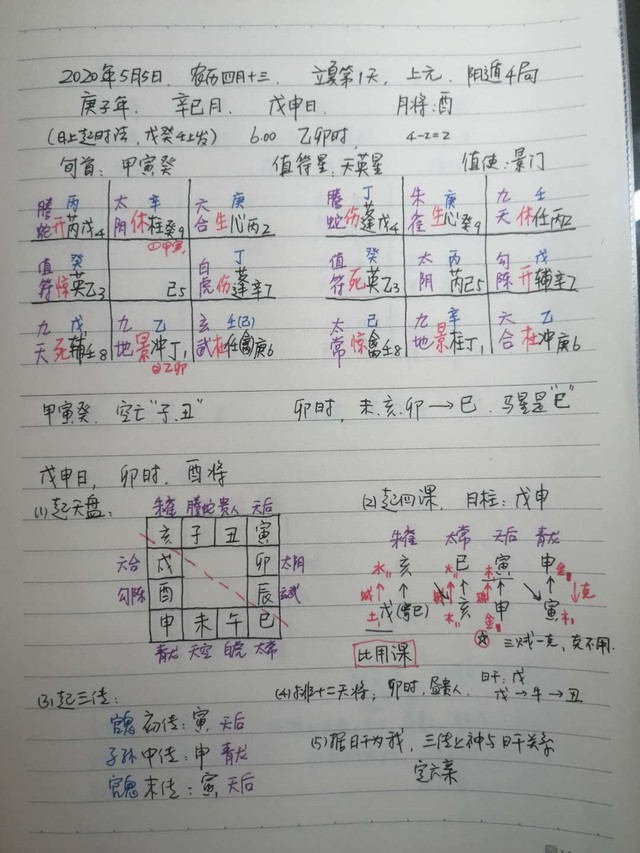 2020年5月5日. 农历四月十三. 立夏第1天, 上元. 阳遁4局
庚子年. 辛巳月. 戊申日. 月将:酉
(日上起时法,戊癸壬上发) 6:00 乙卯时, 4-2=2
旬首: 甲寅癸 值符星: 天英星 值使: 景门
丙 辛 庚 丁 庚 壬
腾蛇 开芮戊4 太阴 休柱癸9 六合 生心丙2 腾蛇 伤蓬戊4 朱雀 生心癸9 九天 休任丙2
①甲寅
癸 丁 癸 丙 戊
值符 惊英乙3 己5 白虎 伤蓬辛7 值符 死英乙3 太阴 芮己5 勾陈 开辅辛7
戊 乙 壬(己) 己 辛 乙
九天 死辅壬8 九地 景冲丁1 玄武 杜任禽庚6 太常 惊禽壬8 九地 景柱丁1 六合 杜冲庚6
②乙卯
甲寅癸. 空亡"子.丑" 卯时, 未.亥.卯→巳. 马星是"巳"
戊申日, 卯时. 酉将
(1)起天盘: 朱雀 腾蛇 贵人 天后 (2)起四课, 日柱: 戊申
亥 子 丑 寅 朱雀 太常 天后 青龙
六合 戌 卯 太阴 水 亥 火 巳 木 寅 申 金
勾陈 酉 辰 玄武 土 戊(寄巳) 水 亥 金 申 寅 木 克
申 未 午 巳 三贼一克, 克不用.
青龙 天空 白虎 太常 比用课
(3)起三传: (4)排十二天将, 卯时, 昼贵人. 日干:戊
戊→牛→丑
官鬼 初传: 寅, 天后
子孙 中传: 申 青龙 (5)据日干为我, 三传上神与日干关系
官鬼 末传: 寅, 天后 定六亲